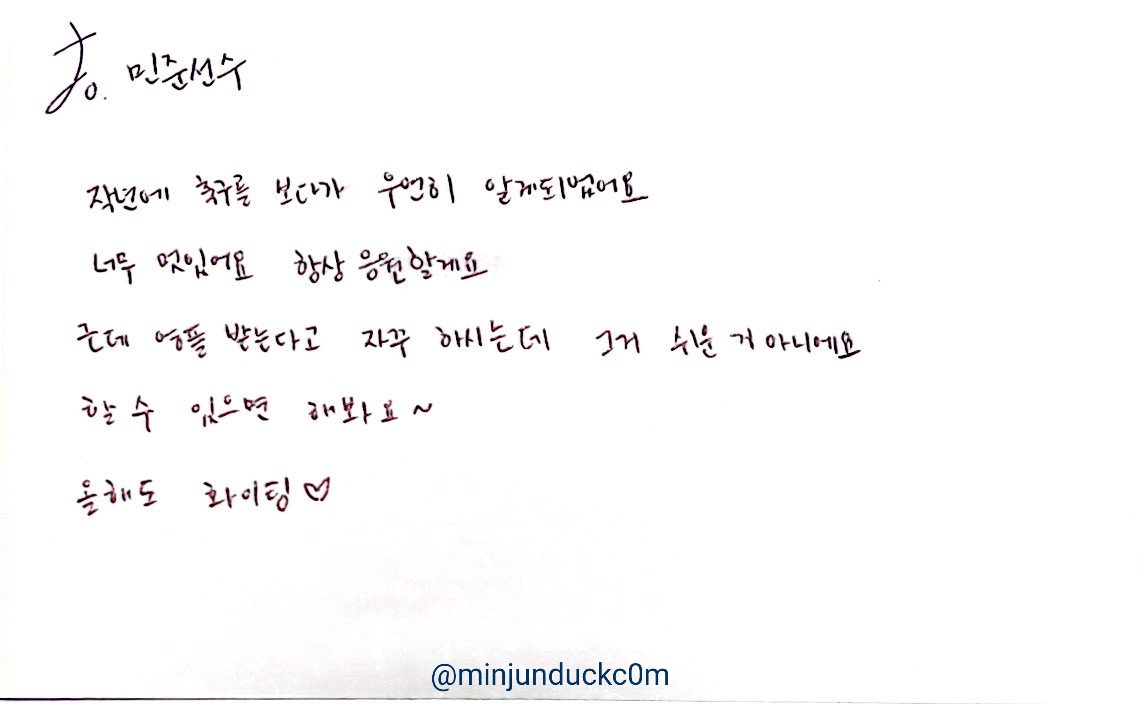 To. 민준선수
작년에 축구를 보다가 우연히 알게되었어요
너무 멋있어요 항상 응원할게요
근데 영플 받는다고 자꾸 하시는데 그거 쉬운 거 아니에요
할 수 있으면 해봐요~
올해도 화이팅♡
@minjunduckc0m